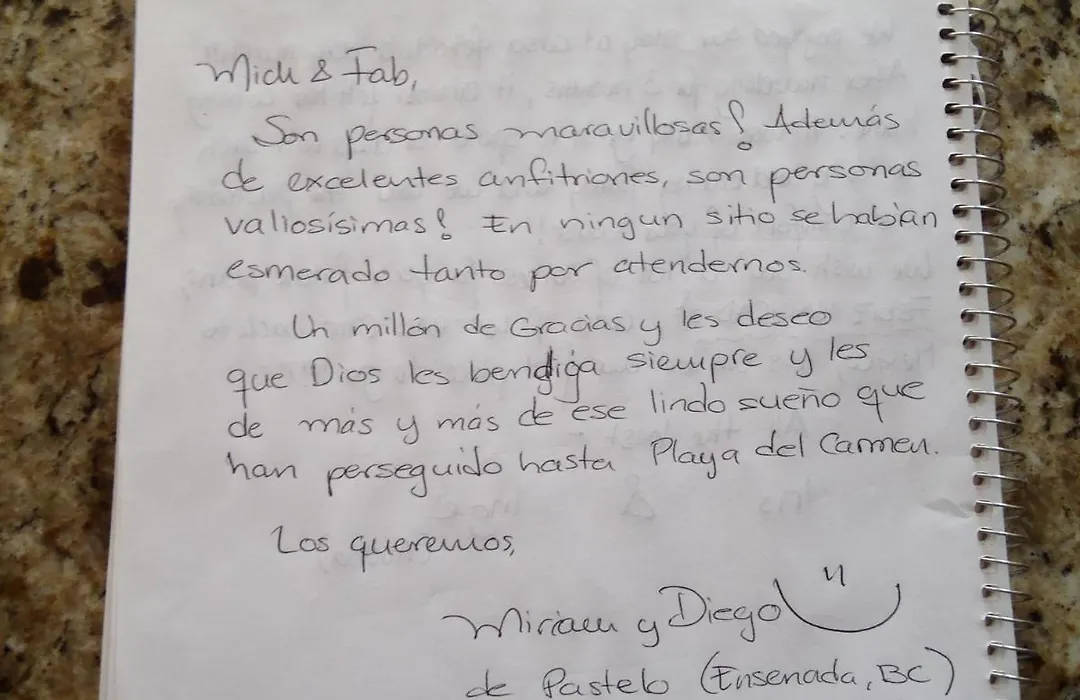 Mich & Fab,
Son personas maravillosas! Además
de excelentes anfitriones, son personas
valiosísimas! En ningun sitio se habían
esmerado tanto por atendernos.
Un millón de Gracias y les deseo
que Dios les bendiga siempre y les
de más y más de ese lindo sueño que
han perseguido hasta Playa del Carmen.
Los queremos,
Miriam y Diego
de Pastelo (Ensenada, BC)